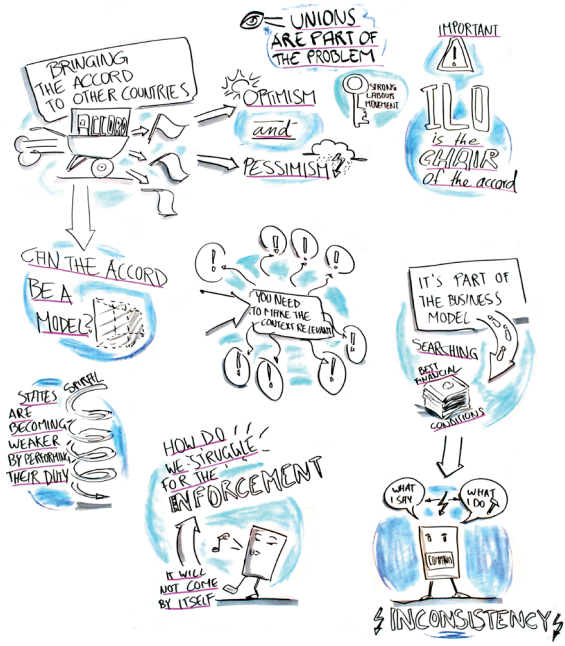 BRINGING
THE ACCORD
TO OTHER COUNTRIES
ACCORD
OPTIMISM
and
PESSIMISM
UNIONS
ARE PART OF
THE PROBLEM
STRONG
LABOUR
MOVEMENT
IMPORTANT
!
ILO
is the
CHAIR
of the accord
CAN THE ACCORD
BE A
MODEL?
! ! ! ! ! ! ! !
YOU NEED
TO MAKE THE
CONTEXT RELEVANT
IT'S PART OF
THE BUSINESS
MODEL
SEARCHING
BEST
FINANCIAL
CONDITIONS
SPIRAL
STATES
ARE
BECOMING
WEAKER
BY PERFORMING
THEIR DUTY
HOW DO
WE STRUGGLE
FOR THE
ENFORCEMENT
IT WILL
NOT COME
BY ITSELF
WHAT
I SAY
WHAT
I DO
COMPANY
INCONSISTENCY